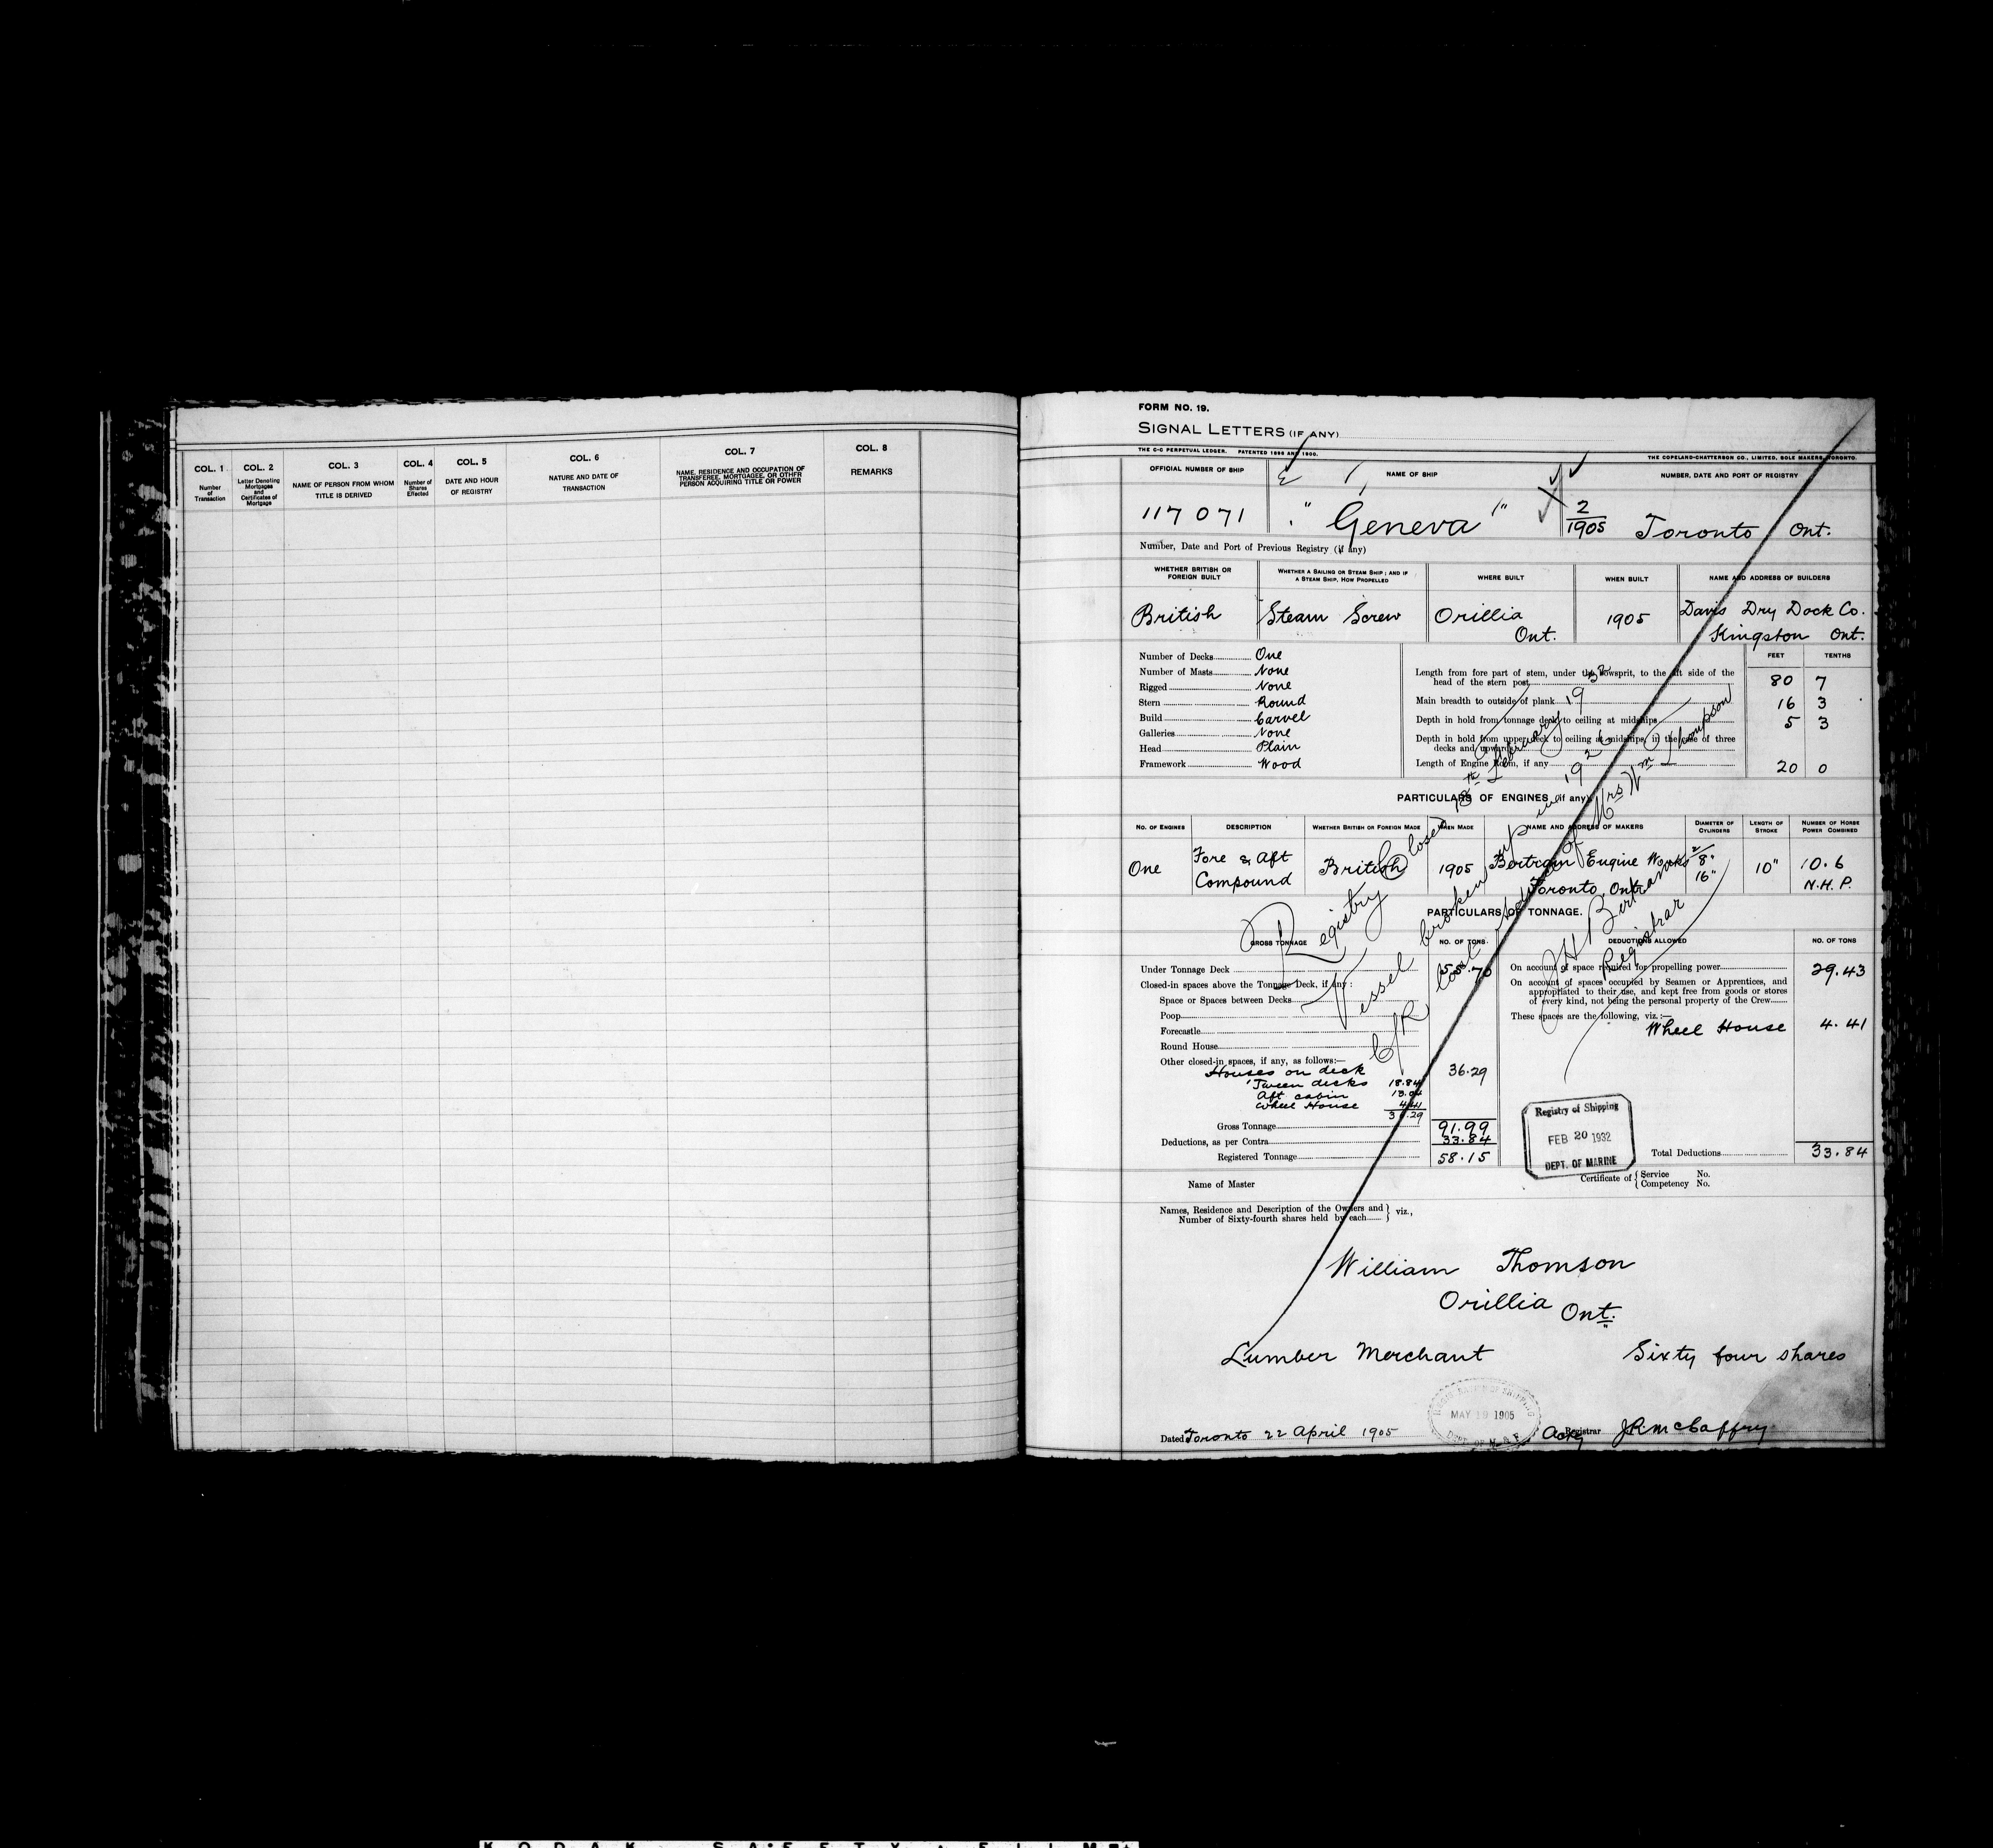 COL. 1
Number
of
Transaction
COL. 2
Letter Denoting
Mortgages
and
Certificates of
Mortgage
COL. 3
NAME OF PERSON FROM WHOM
TITLE IS DERIVED
COL. 4
Number of
Shares
Effected
COL. 5
DATE AND HOUR
OF REGISTRY
COL. 6
NATURE AND DATE OF
TRANSACTION
COL. 7
NAME, RESIDENCE AND OCCUPATION OF
TRANSFEREE, MORTGAGEE, OR OTHER
PERSON ACQUIRING TITLE OR POWER
COL. 8
REMARKS
FORM NO. 19.
SIGNAL LETTERS (IF ANY)
THE C-C PERPETUAL LEDGER. PATENTED 1896 AND 1900.
THE COPELAND-CHATTERSON CO., LIMITED, SOLE MAKERS, TORONTO.
OFFICIAL NUMBER OF SHIP
NAME OF SHIP
NUMBER, DATE AND PORT OF REGISTRY
117071
"Geneva"
2
1905 Toronto Ont.
Number, Date and Port of Previous Registry (if any)
WHETHER BRITISH OR
FOREIGN BUILT
WHETHER A SAILING OR STEAM SHIP; AND IF
A STEAM SHIP, HOW PROPELLED
WHERE BUILT
WHEN BUILT
NAME AND ADDRESS OF BUILDERS
British
Steam Screw
Orillia
Ont.
1905
Davis Dry Dock Co.
Kingston Ont.
FEET TENTHS
Number of Decks One
Number of Masts None
Rigged None
Stern Round
Build Carvel
Galleries None
Head Plain
Framework Wood
Length from fore part of stem, under the bowsprit, to the aft side of the
head of the stern post 80 7
Main breadth to outside of plank 16 3
Depth in hold from tonnage deck to ceiling at midships 5 3
Depth in hold from upper deck to ceiling at midships, in the case of three
decks and upwards
Length of Engine Room, if any 20 0
PARTICULARS OF ENGINES (if any)
NO. OF ENGINES
DESCRIPTION
WHETHER BRITISH OR FOREIGN MADE
WHEN MADE
NAME AND ADDRESS OF MAKERS
DIAMETER OF
CYLINDERS
LENGTH OF
STROKE
NUMBER OF HORSE
POWER COMBINED
One
Fore & Aft
Compound
British
1905
Bertram Engine Works
Toronto Ont
8"
16"
10"
10.6
N.H.P.
PARTICULARS OF TONNAGE.
GROSS TONNAGE
NO. OF TONS.
DEDUCTIONS ALLOWED
NO. OF TONS
Under Tonnage Deck 55.70
Closed-in spaces above the Tonnage Deck, if any:
Space or Spaces between Decks
Poop
Forecastle
Round House
Other closed-in spaces, if any, as follows:—
Houses on deck 36.29
'Tween decks 18.84
Aft cabin 13.04
Wheel House 4.41
36.29
Gross Tonnage 91.99
Deductions, as per Contra 33.84
Registered Tonnage 58.15
On account of space required for propelling power 29.43
On account of spaces occupied by Seamen or Apprentices, and
appropriated to their use, and kept free from goods or stores
of every kind, not being the personal property of the Crew
These spaces are the following, viz.:—
Wheel House 4.41
Total Deductions 33.84
Registry closed 18th February 1932
Vessel broken up in 1926
C/R lost Address of Mrs Wm Thompson
J H Bertram
Registrar
Registry of Shipping
FEB 20 1932
DEPT. OF MARINE
Name of Master
Certificate of { Service No.
Competency No.
Names, Residence and Description of the Owners and
Number of Sixty-fourth shares held by each } viz.,
William Thomson
Orillia Ont.
Lumber Merchant Sixty four shares
MAY 19 1905
Dated Toronto 22 April 1905
Actg Registrar JR McCaffry
KODAK SAFETY FILM